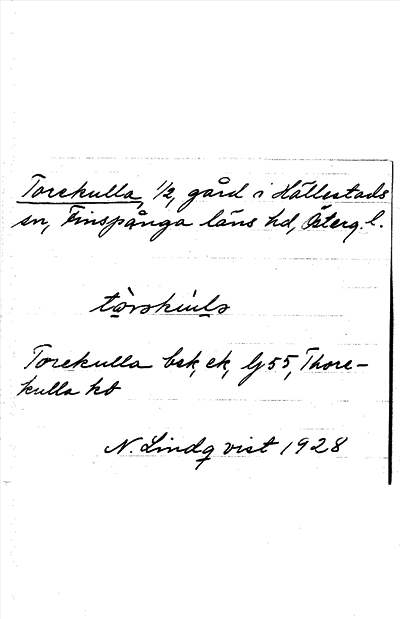 Torekulla, 1/2, gård i Hällestads
sn, Finspånga läns hd, Österg. l.
Torekulla bsk, ek, lj 55, Thore-
kulla kb
N. Lindqvist 1928